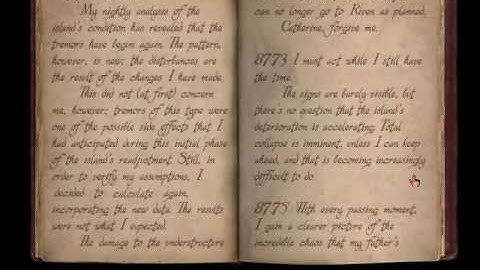 My nightly analysis of the
island's condition has revealed that the
tremors have begun again. The pattern,
however, is new; the disturbances are
the result of the changes I have made.
This did not (at first) concern
me, however; tremors of this type were
one of the possible side effects that I
had anticipated during this initial phase
of the island's readjustment. Still, in
order to verify my assumptions, I
decided to calculate again,
incorporating the new data. The results
were not what I expected.
The damage to the understructure
can no longer go to Riven as planned.
Catherine, forgive me.
8773 I must act while I still have
the time.
The signs are barely visible, but
there's no question that the island's
deterioration is accelerating. Total
collapse is imminent, unless I can keep
ahead, and that is becoming increasingly
difficult to do.
8775 With every passing moment,
I gain a clearer picture of the
incredible chaos that my father's